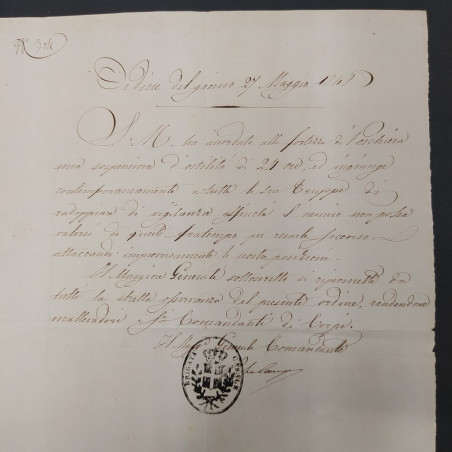 N° 304
Ordine del giorno 27 Maggio 1848
S. M. ha accordato alla fortezza di Peschiera
una sospensione d'ostilità di 24 ore, ed ingiunge
contemporaneamente a tutte le sue Truppe di
radoppiare di vigilanza affinché il nemico non possa
valersi di questo frattempo per recarle soccorso
attaccando improvvisamente le nostre posizioni.
Il Maggiore Generale sottoscritto si ripromette da
tutti la stretta osservanza del presente ordine, rendendone
mallevadori i Sig.i Comandanti di Corpi.
Il Magg. Generale Comandante
BRIGATA